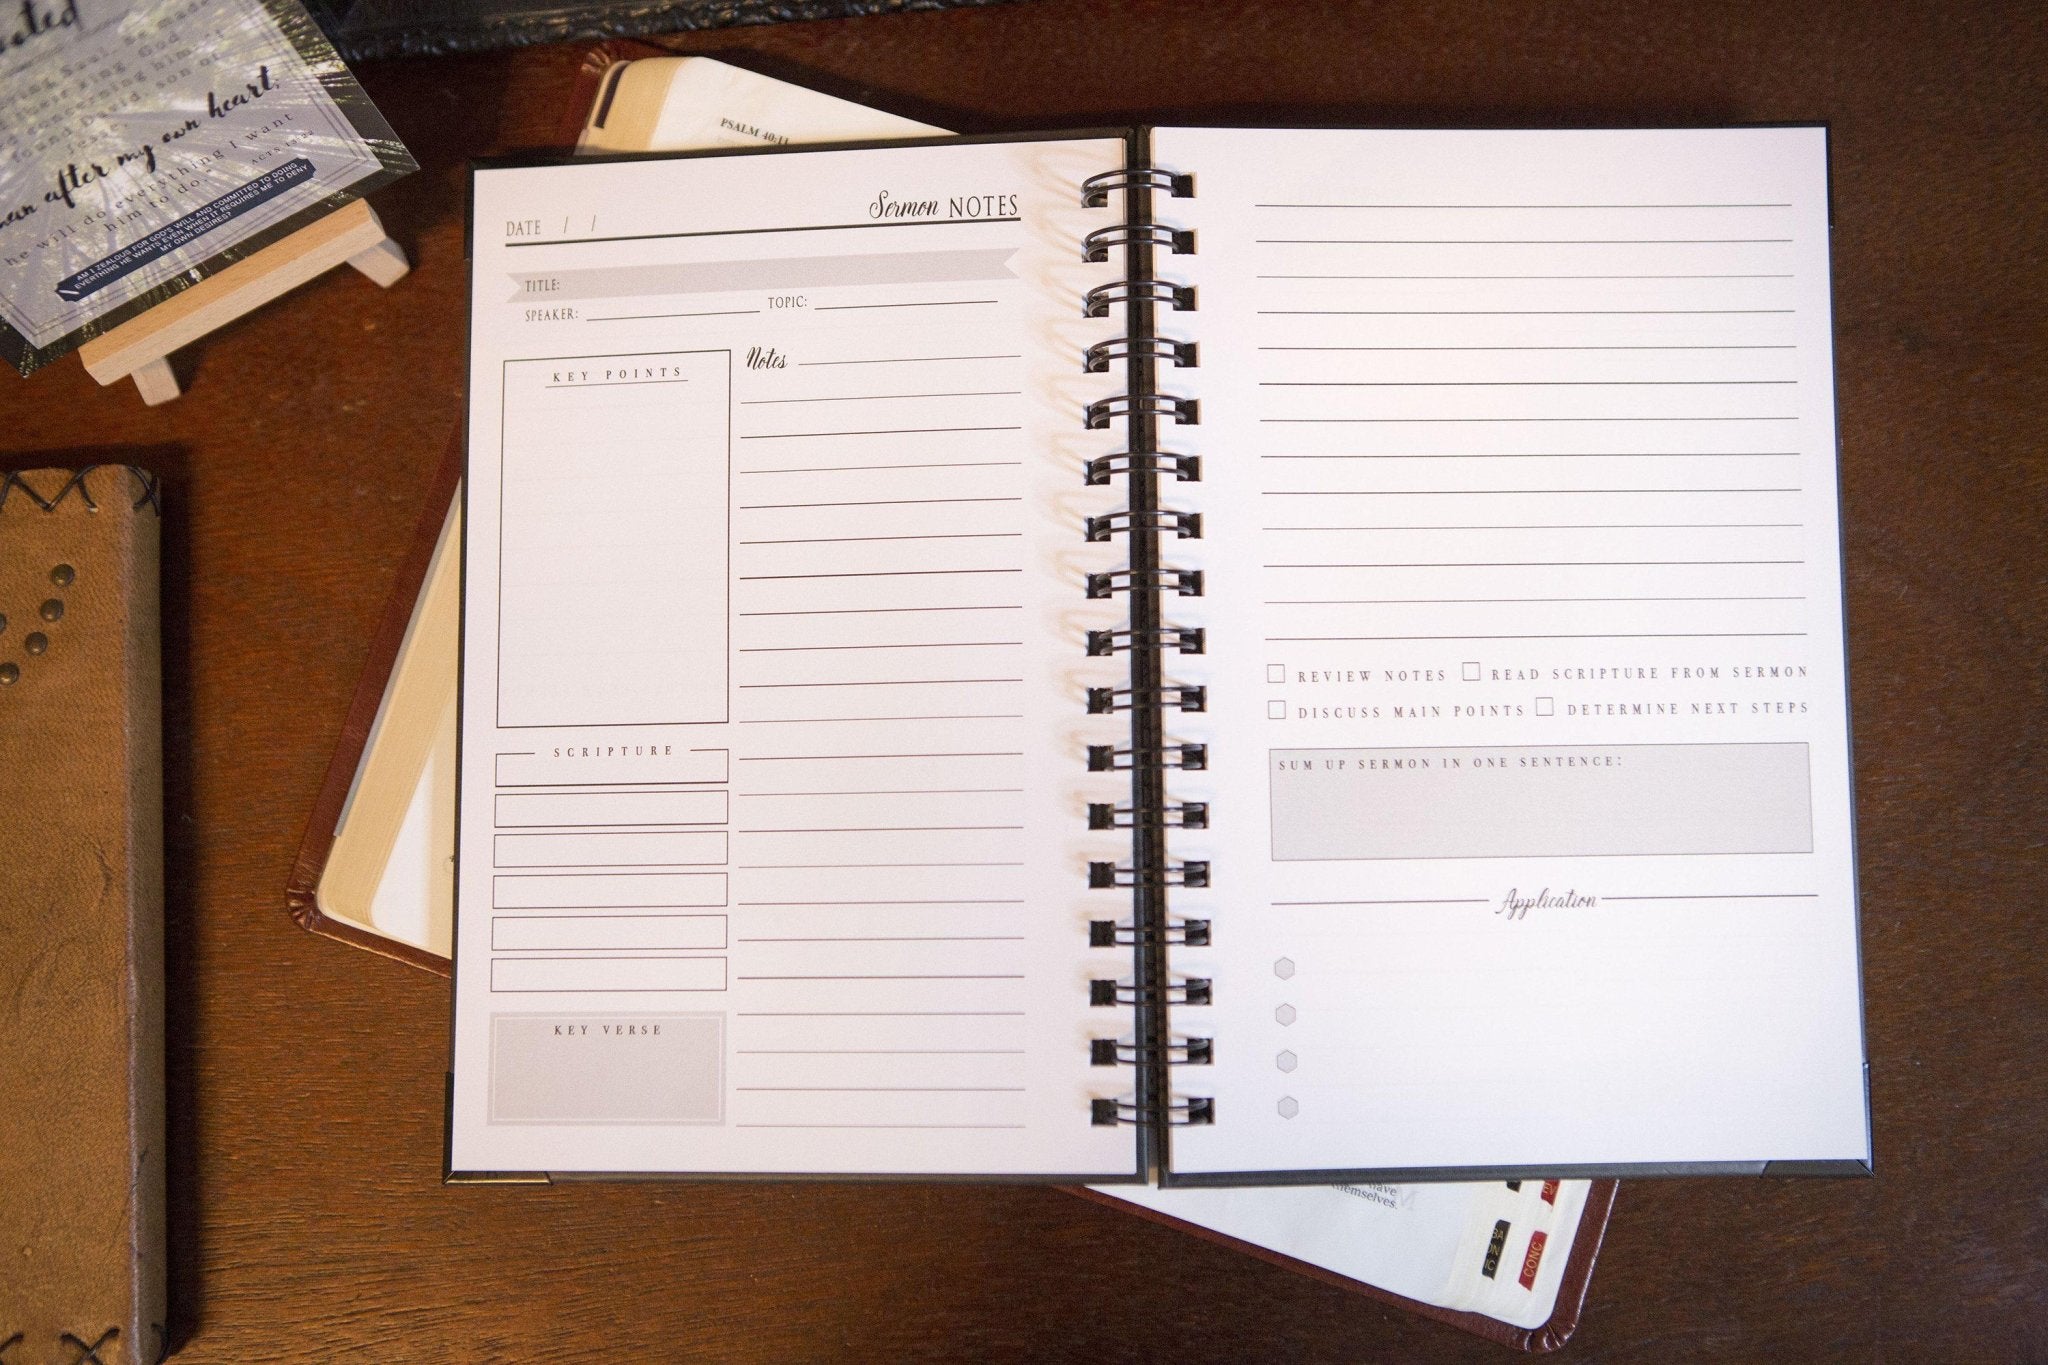 God
David, son of
man after my own heart,
he will do everything I want
him to do."
ACTS 13:22
AM I ZEALOUS FOR GOD'S WILL AND COMMITTED TO DOING
EVERTHING HE WANTS EVEN WHEN IT REQUIRES ME TO DENY
MY OWN DESIRES?
PSALM 40:11
DATE / /
Sermon NOTES
TITLE:
SPEAKER: TOPIC:
KEY POINTS
Notes
SCRIPTURE
KEY VERSE
REVIEW NOTES READ SCRIPTURE FROM SERMON
DISCUSS MAIN POINTS DETERMINE NEXT STEPS
SUM UP SERMON IN ONE SENTENCE:
Application
have
themselves.
CONC